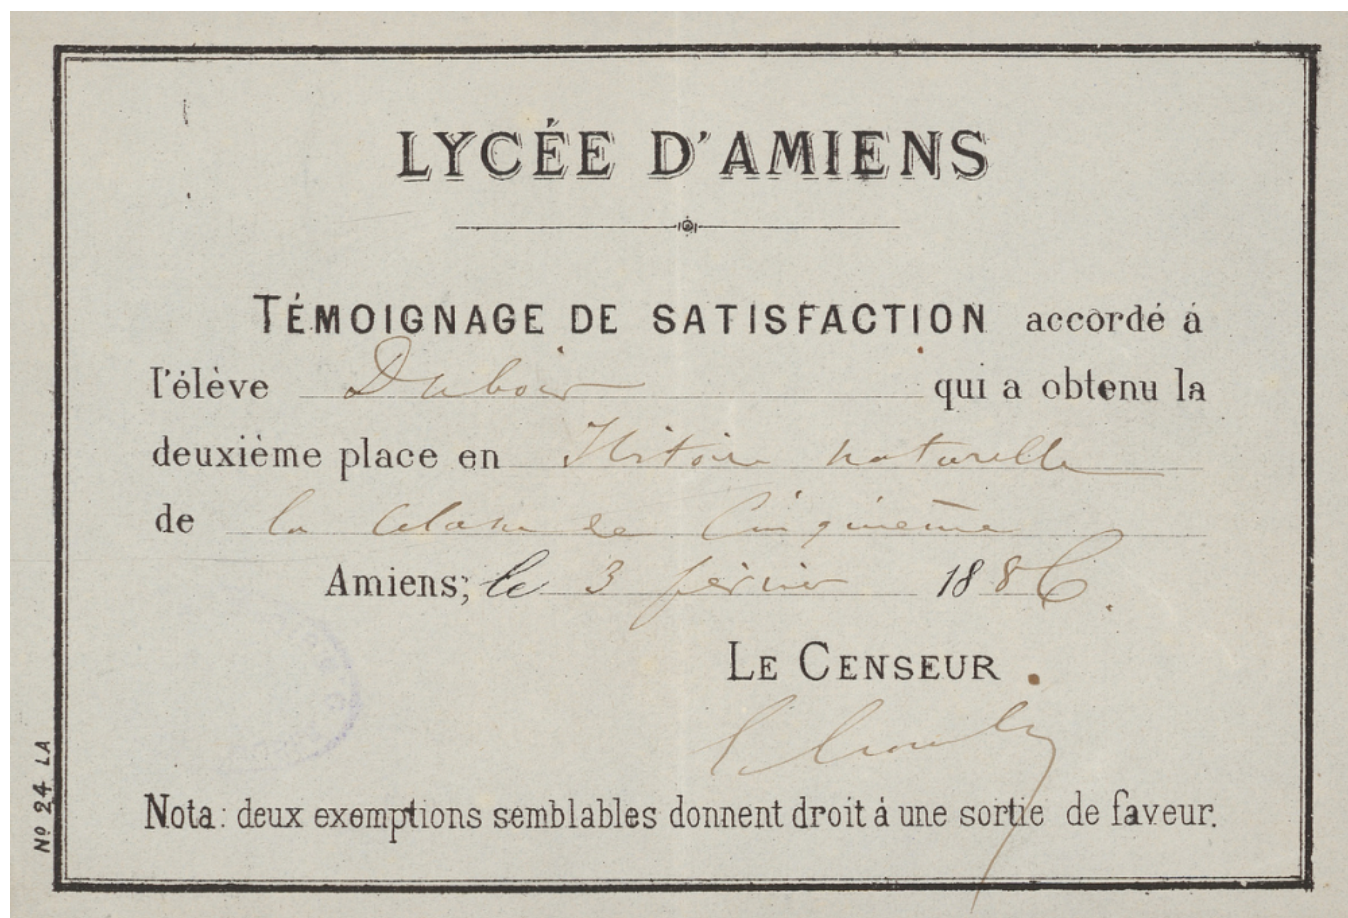 LYCÉE D'AMIENS
TÉMOIGNAGE DE SATISFACTION accordé à
l'élève Dubois qui a obtenu la
deuxième place en Histoire naturelle
de la classe de Cinquième
Amiens; le 3 février 1886.
LE CENSEUR
Nota: deux exemptions semblables donnent droit à une sortie de faveur.
Nº 24 LA